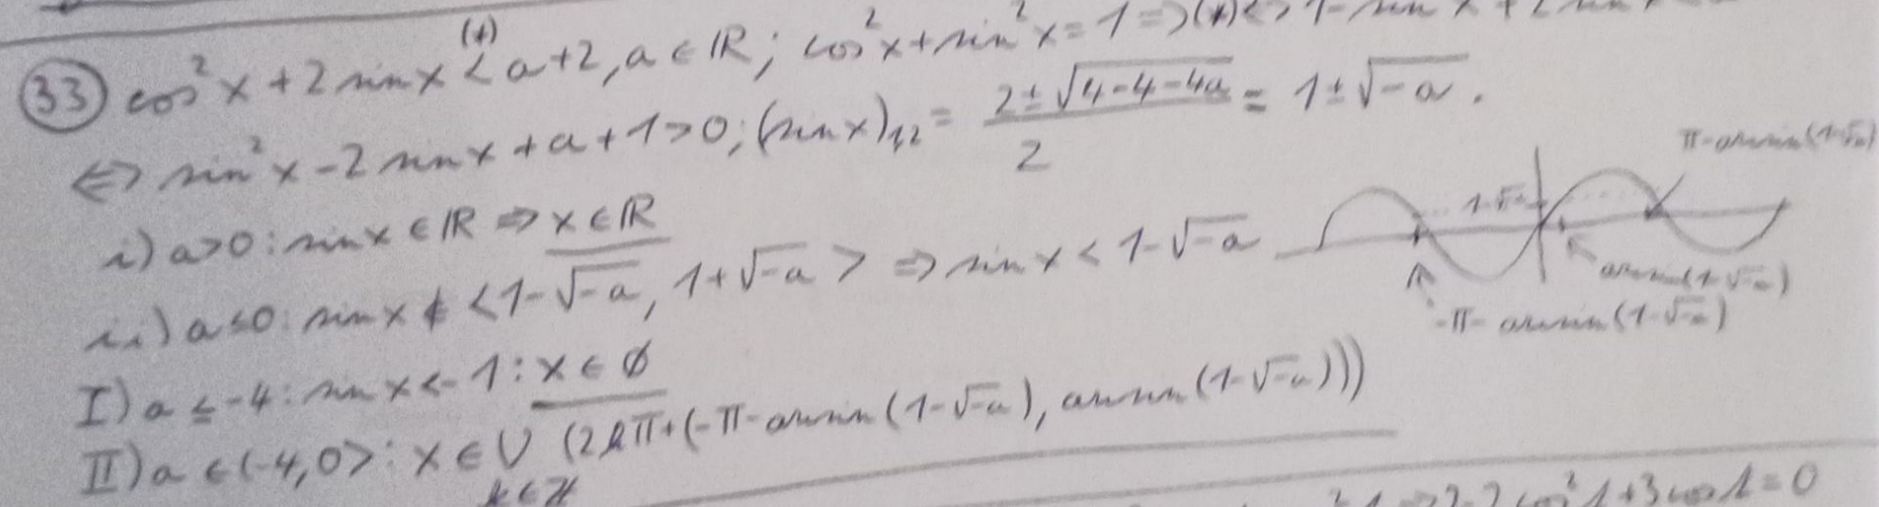 (33) cos²x + 2 sin x <^(*) a+2, a ∈ ℝ; cos²x + sin²x = 1 ⇒ (*) ⇔ 1 - sin²x + 2 sin x
⇔ sin²x - 2 sin x + a + 1 > 0; (sin x)₁,₂ = (2 ± √(4-4-4a))/2 = 1 ± √(-a).
i) a>0: sin x ∈ ℝ ⇒ x ∈ ℝ
ii) a≤0: sin x ∉ <1-√(-a), 1+√(-a)> ⇒ sin x < 1-√(-a)
π - arcsin(1-√(-a))
1-√(-a)
arcsin(1-√(-a))
-π - arcsin(1-√(-a))
I) a ≤ -4: sin x < -1: x ∈ ∅
II) a ∈ (-4, 0>: x ∈ ∪ (2kπ + (-π - arcsin(1-√(-a)), arcsin(1-√(-a))))
k ∈ ℤ
cos²1 + 3 cos 1 = 0